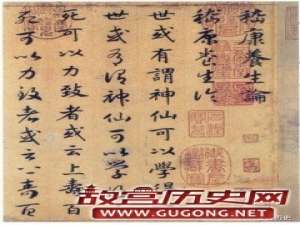 嵇康養生論
嵇康養生論
世或有謂神仙可以學得
世或有謂神仙可以學
死可以力致者或云上壽百
死可以力致者或云上壽百
故宫历史网
WWW.GUGONG.NET